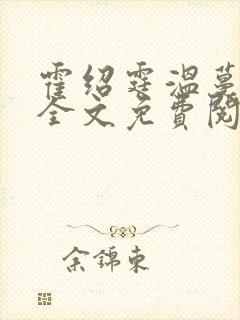 霍绍霆温蔓
全文免費閱
余錦東